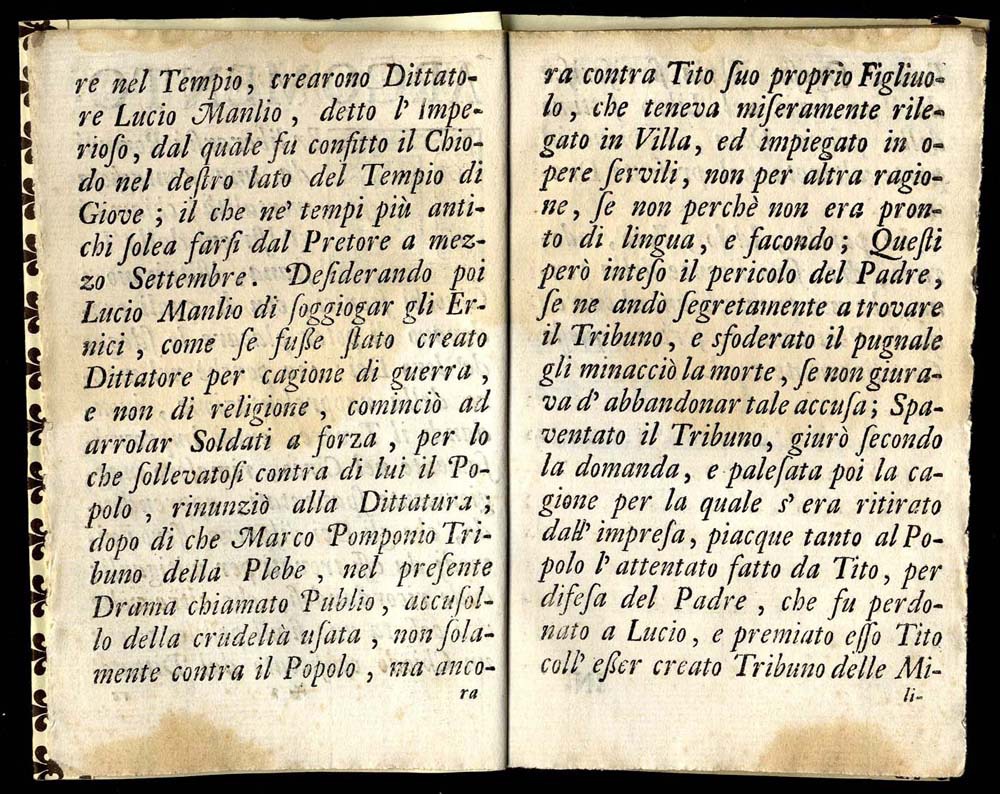 re nel Tempio, crearono Dittato-
re Lucio Manlio, detto l' Impe-
rioſo, dal quale fu confitto il Chio-
do nel deſtro lato del Tempio di
Giove; il che ne' tempi più anti-
chi ſolea farſi dal Pretore a mez-
zo Settembre. Deſiderando poi
Lucio Manlio di ſoggiogar gli Er-
nici, come ſe fuſſe ſtato creato
Dittatore per cagione di guerra,
e non di religione, cominciò ad
arrolar Soldati a forza, per lo
che ſollevatoſi contra di lui il Po-
polo, rinunziò alla Dittatura;
dopo di che Marco Pomponio Tri-
buno della Plebe, nel preſente
Drama chiamato Publio, accuſol-
lo della crudeltà uſata, non ſola-
mente contra il Popolo, ma anco-
ra
ra contra Tito ſuo proprio Figliuo-
lo, che teneva miſeramente rile-
gato in Villa, ed impiegato in o-
pere ſervili, non per altra ragio-
ne, ſe non perchè non era pron-
to di lingua, e facondo; Queſti
però inteſo il pericolo del Padre,
ſe ne andò ſegretamente a trovare
il Tribuno, e sfoderato il pugnale
gli minacciò la morte, ſe non giura-
va d' abbandonar tale accuſa; Spa-
ventato il Tribuno, giurò ſecondo
la domanda, e paleſata poi la ca-
gione per la quale s' era ritirato
dall' impreſa, piacque tanto al Po-
polo l' attentato fatto da Tito, per
difeſa del Padre, che fu perdo-
nato a Lucio, e premiato eſſo Tito
coll' eſſer creato Tribuno delle Mi-
li-